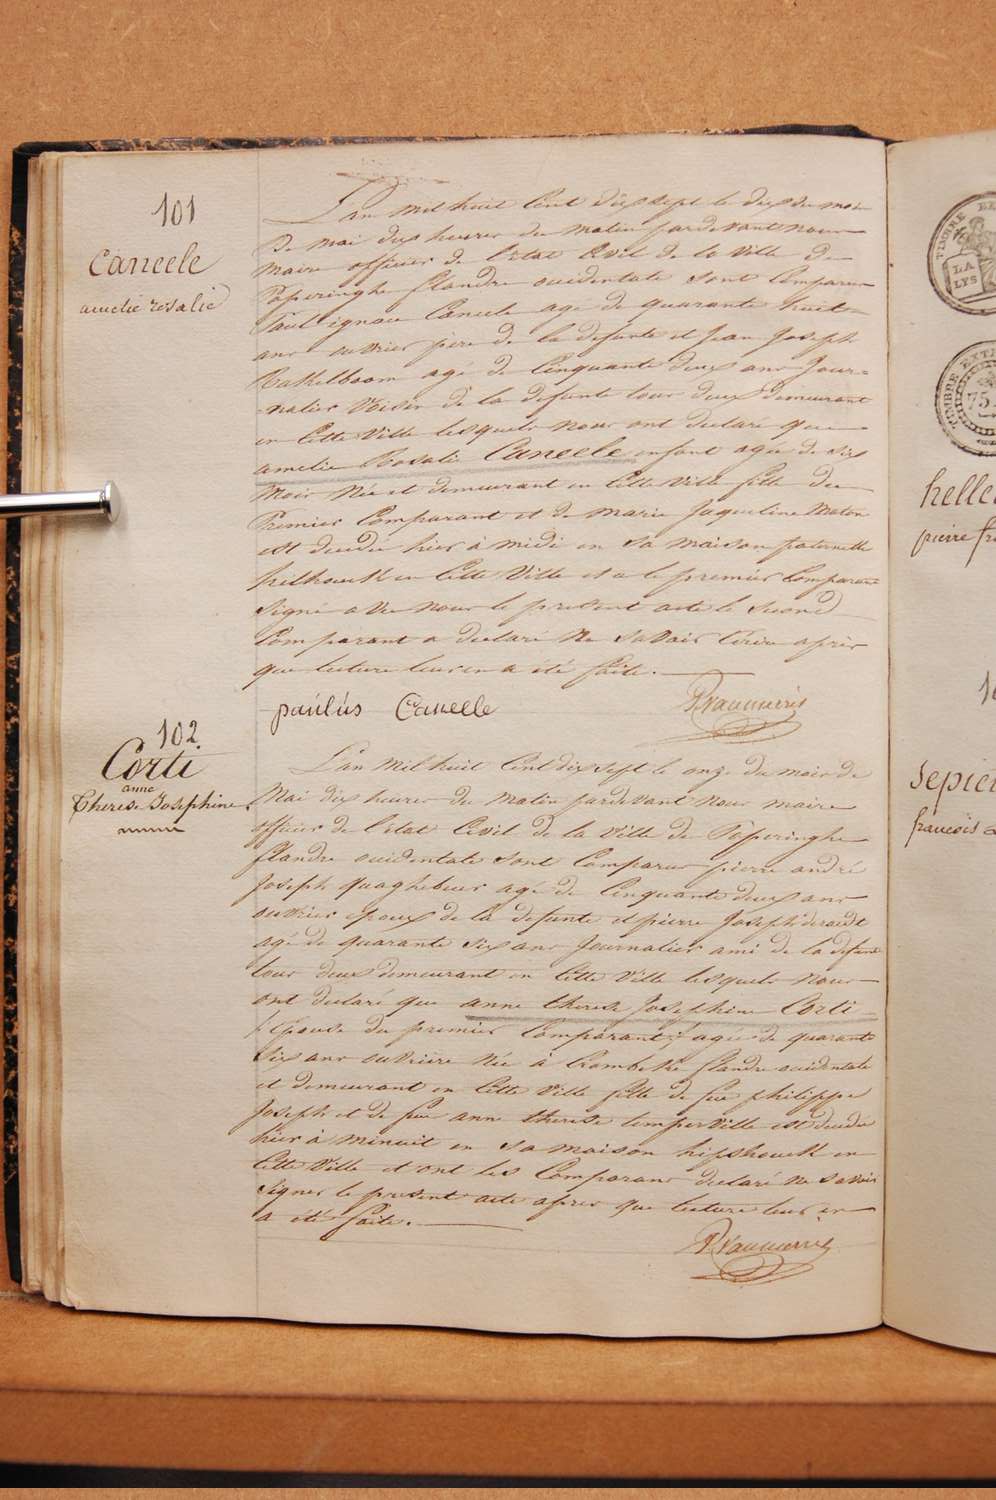 101
Caneele
amelie rosalie
L'an mil huit Cent dix sept le dix du mois
De mai dix heures du matin pardevant nous
maire officier de l'etat Civil de la Ville De
Poperinghe flandre occidentale sont Comparus
Paul ignace Caneele age de quarante huit
ans ouvrier pere de la defunte et jean Joseph
age de Cinquante deux ans Jour=
=nalier Voisin de la defunte tous deux demeurant
en Cette Ville lesquels nous ont declaré que
amelie Rosalie Caneele enfant agée de six
mois Née et demeurant en Cette Ville fille du
Premier Comparant et de marie Jaqueline
est decedée hier à midi en sa maison paternelle
en Cette Ville et a le premier Comparant
signé avec nous le present acte le second
Comparant a declaré ne savoir Ecrire après
que lecture leur en a été faite.
paulus Caneele
102.
Corti
anne
Therese Josephine
L'an mil huit Cent dix sept le onze du mois de
Mai dix heures du matin pardevant nous maire
officier de l'etat Civil de la Ville de Poperinghe
flandre occidentale sont Comparus pierre andré
Joseph quaghebeur agé de Cinquante deux ans
ouvrier epoux de la defunte et pierre Joseph
agé de quarante six ans Journalier ami de la defunte
tous deux demeurant en Cette Ville lesquels nous
ont declaré que anne therese Josephine Corti
Epouse du premier Comparant agée de quarante
six ans ouvrière Née à Crombeke flandre occidentale
et demeurant en Cette Ville fille de feu philippe
Joseph et de feu anne therese temperville est decedée
hier à minuit en sa maison hipshouck en
Cette Ville et ont les Comparans declaré ne savoir
signer le present acte après que lecture leur en
a été faite.
TIMBRE
LA
LYS
TIMBRE
75
pierre
sepier
francois